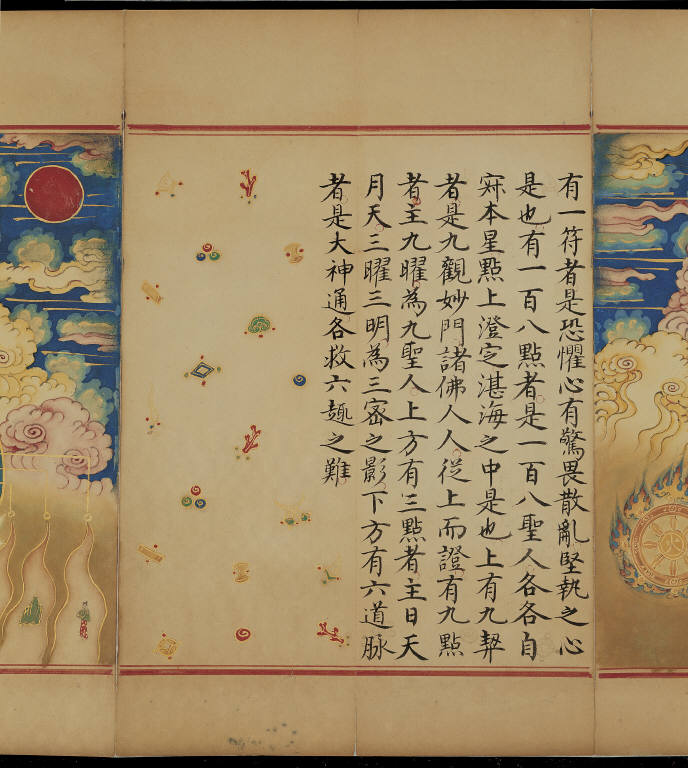 有一符者是恐懼心有驚畏散亂堅執之心
是也有一百八點者是一百八聖人各各自
㝷本星點上澄定湛海之中是也上有九契
者是九觀妙門諸佛人人從上而證有九點
者主九曜為九聖人上方有三點者主日天
月天三曜三明為三密之影下方有六道脉
者是大神通各救六趣之難